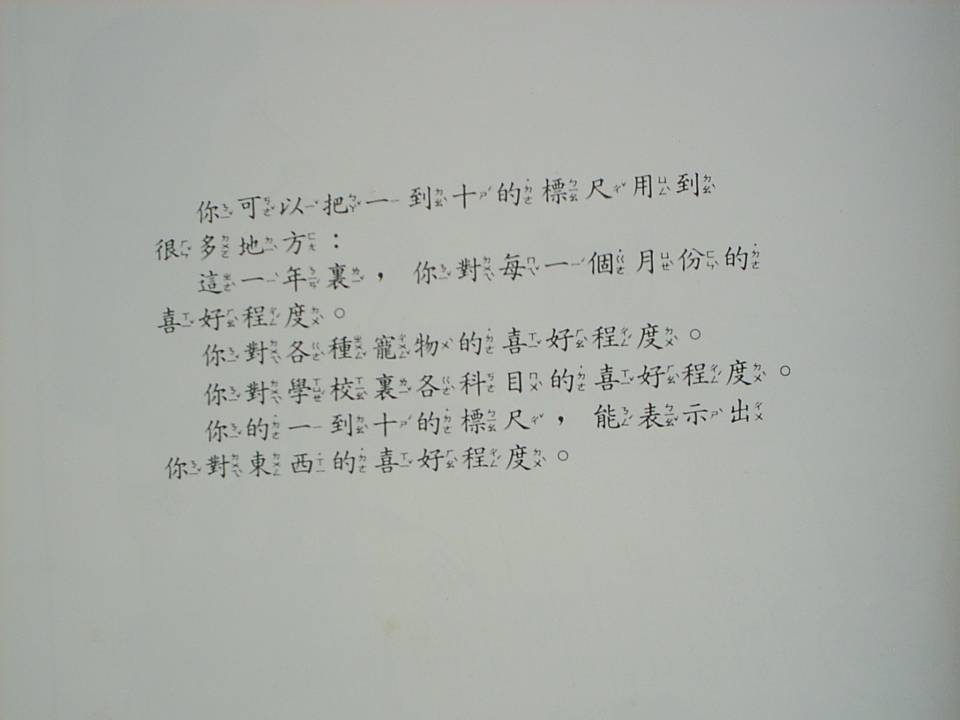 你可以把一到十的標尺用到
很多地方：
這一年裏，你對每一個月份的
喜好程度。
你對各種寵物的喜好程度。
你對學校裏各科目的喜好程度。
你的一到十的標尺，能表示出
你對東西的喜好程度。